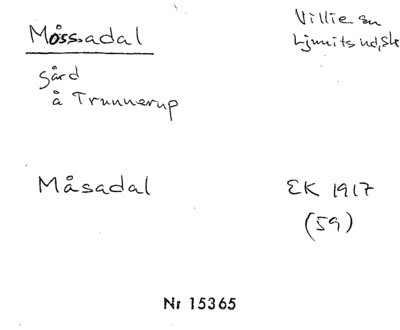 Mossadal
Villie sn
Ljunits hd, Sk
gård
å Trunnerup
Måsadal
EK 1917
(59)
Nr 15365